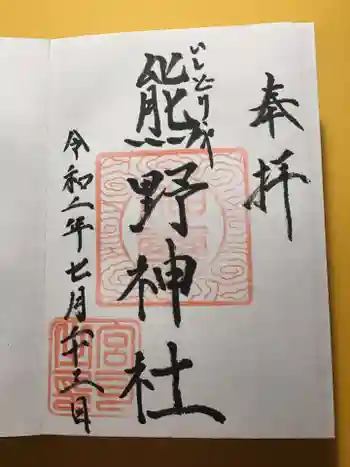 奉拝
いしどりや
熊野神社
令和二年七月二十三日